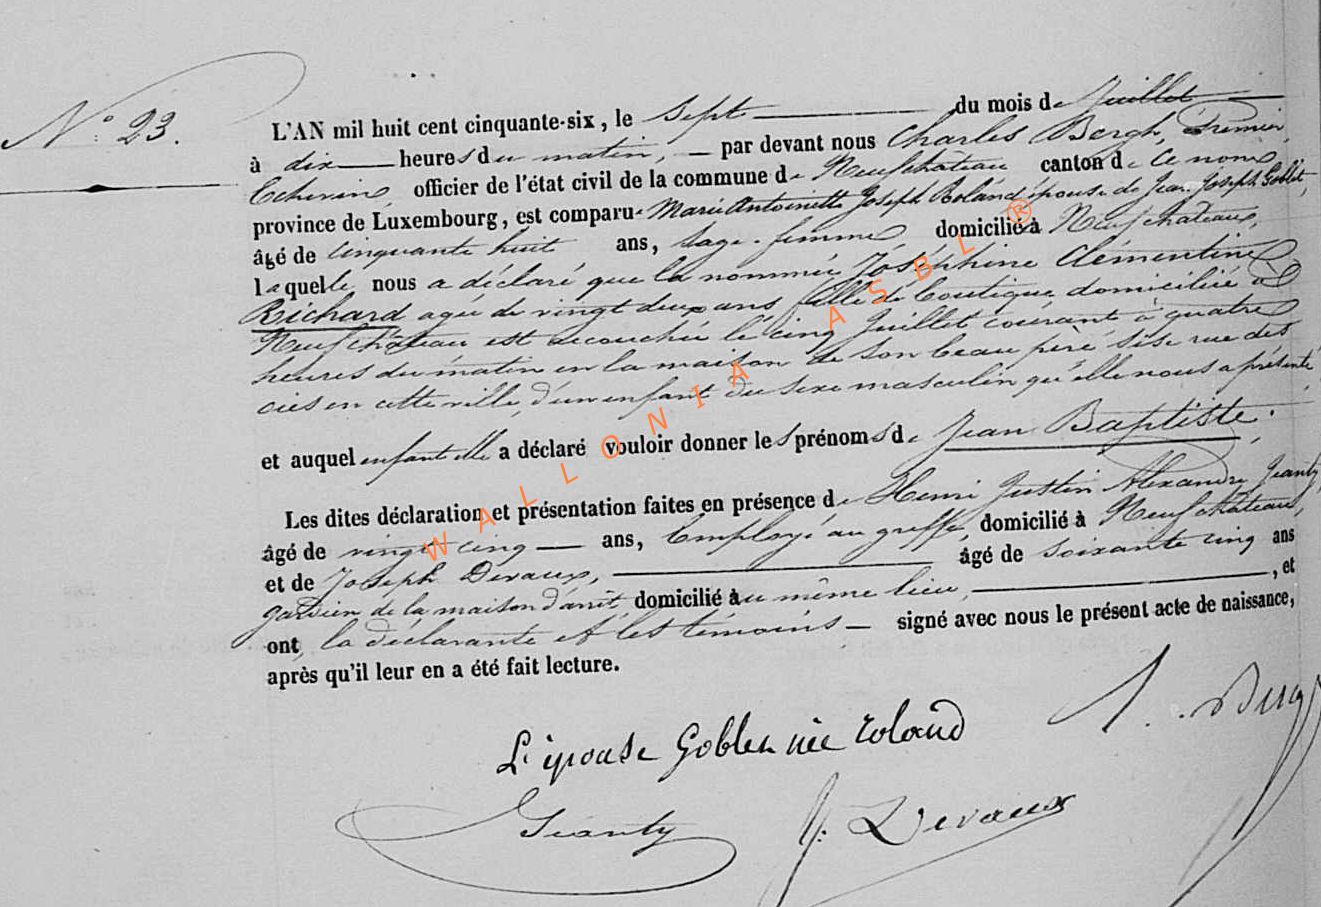 N.° 23.
L'AN mil huit cent cinquante-six, le Sept du mois de Juillet
à dix heures du matin, par devant nous Charles Bergh, Premier
Echevin, officier de l'état civil de la commune de Neufchateau canton de Ce nom,
province de Luxembourg, est comparue Marie Antoinette Joseph Roland épouse de Jean Joseph Goblet,
âgé de cinquante huit ans, Sage-femme, domicilié à Neufchateau,
laquelle nous a déclaré que la nommée Joséphine Clémentine
Richard agée de vingt deux ans fille de boutique, domiciliée à
Neufchâteau est accouchée le cinq Juillet courant à quatre
heures du matin en la maison de son beau père sise rue des
en cette ville, d'un enfant du sexe masculin qu'elle nous a présenté
et auquel enfant elle a déclaré vouloir donner les prénoms de Jean Baptiste.
Les dites déclaration et présentation faites en présence de Henri Justin Alexandre Jeanty,
âgé de vingt cinq ans, Employé au greffe, domicilié à Neufchâteau,
et de Joseph Devaux, âgé de soixante cinq ans
gardien de la maison d'arrêt, domicilié au même lieu, , et
ont, la déclarante et les témoins signé avec nous le présent acte de naissance,
après qu'il leur en a été fait lecture.
L'épouse Goblet née roland
Jeanty J. Devaux
WALLONIA ASBL ®